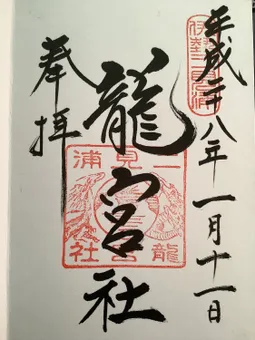 伊勢二見浦
平成二十八年一月十一日
龍宮社
二見浦
龍宮社
奉拝